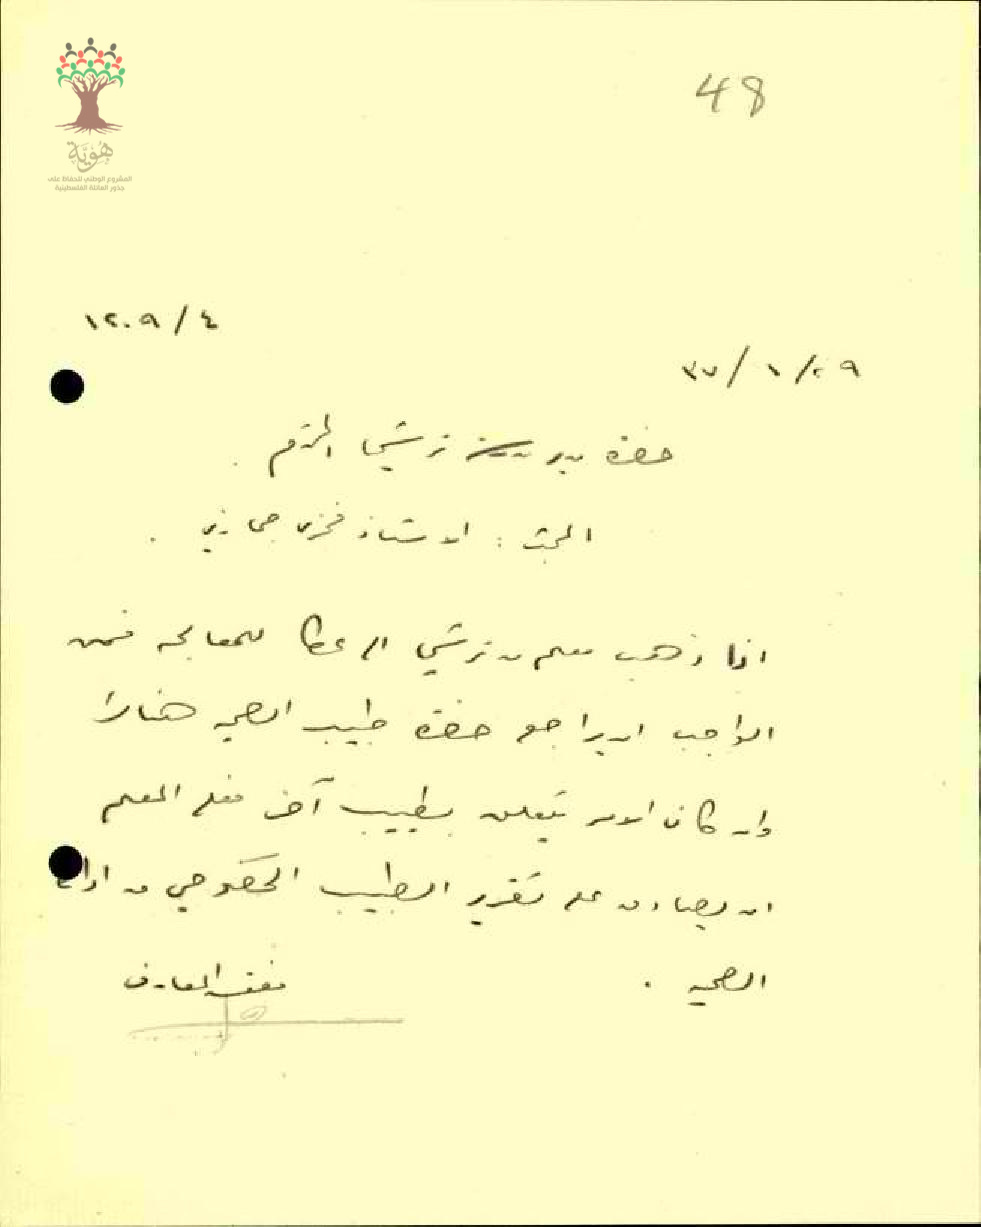 هوية
المشروع الوطني للحفاظ على
جذور العائلة الفلسطينية
48
١٢٠٩/٤
٣٧/١/٢٩
حضرة مدير مدرسة ترشيحا المحترم
المبحث : الاستاذ فخري
اذا ذهب معلم من ترشيحا الى عكا للمعالجه فمن
الواجب ان يراجع حضرة طبيب الصحه هناك
وان كان الامر يتعلق بطبيب آخر فعلى المعلم
ان يصادق على تقرير الطبيب الخصوصي من ادارة
الصحيه .
مفتش المعارف